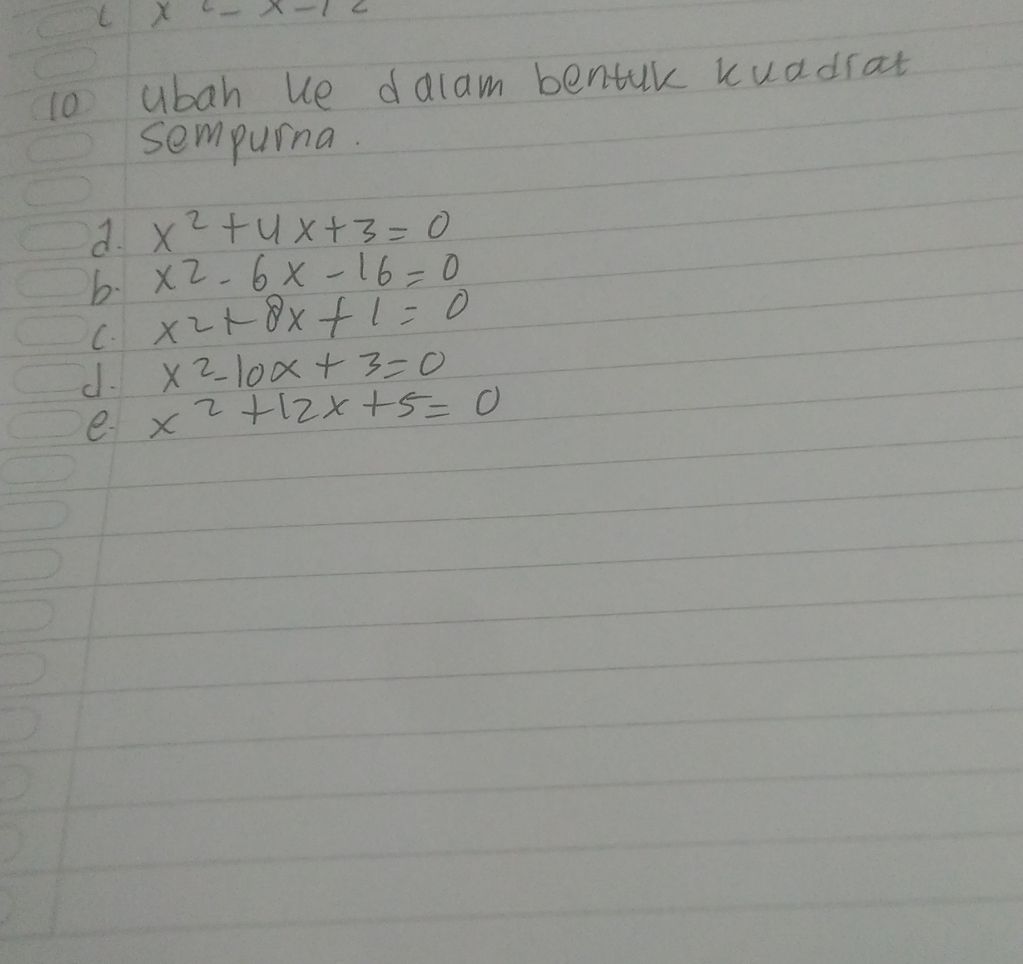 10 ubah ke dalam bentuk kuadrat
sempurna.
a. x² + 4x + 3 = 0
b. x2 - 6x - 16 = 0
c. x2 + 8x + 1 = 0
d. x² - 10x + 3 = 0
e. x² + 12x + 5 = 0